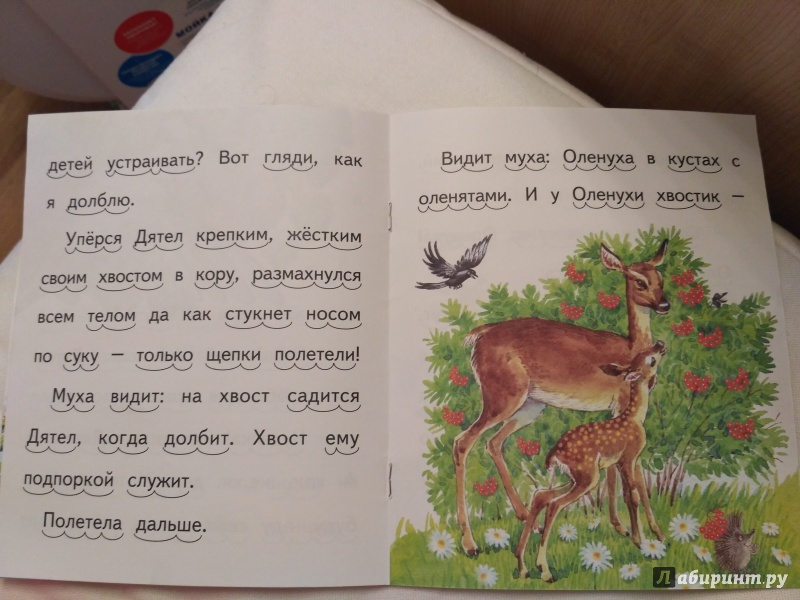 детей устраивать? Вот гляди, как
я долблю.
Упёрся Дятел крепким, жёстким
своим хвостом в кору, размахнулся
всем телом да как стукнет носом
по суку – только щепки полетели!
Муха видит: на хвост садится
Дятел, когда долбит. Хвост ему
подпоркой служит.
Полетела дальше.
Видит муха: Оленуха в кустах с
оленятами. И у Оленухи хвостик –
Лабиринт.ру